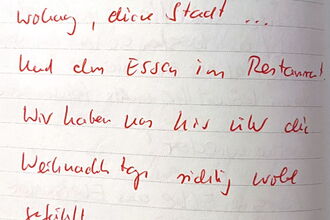 Wohnung, diese Stadt ...
und den Essen im Restaurant.
Wir haben uns hier über die
Weihnachtstage richtig wohl
gefühlt